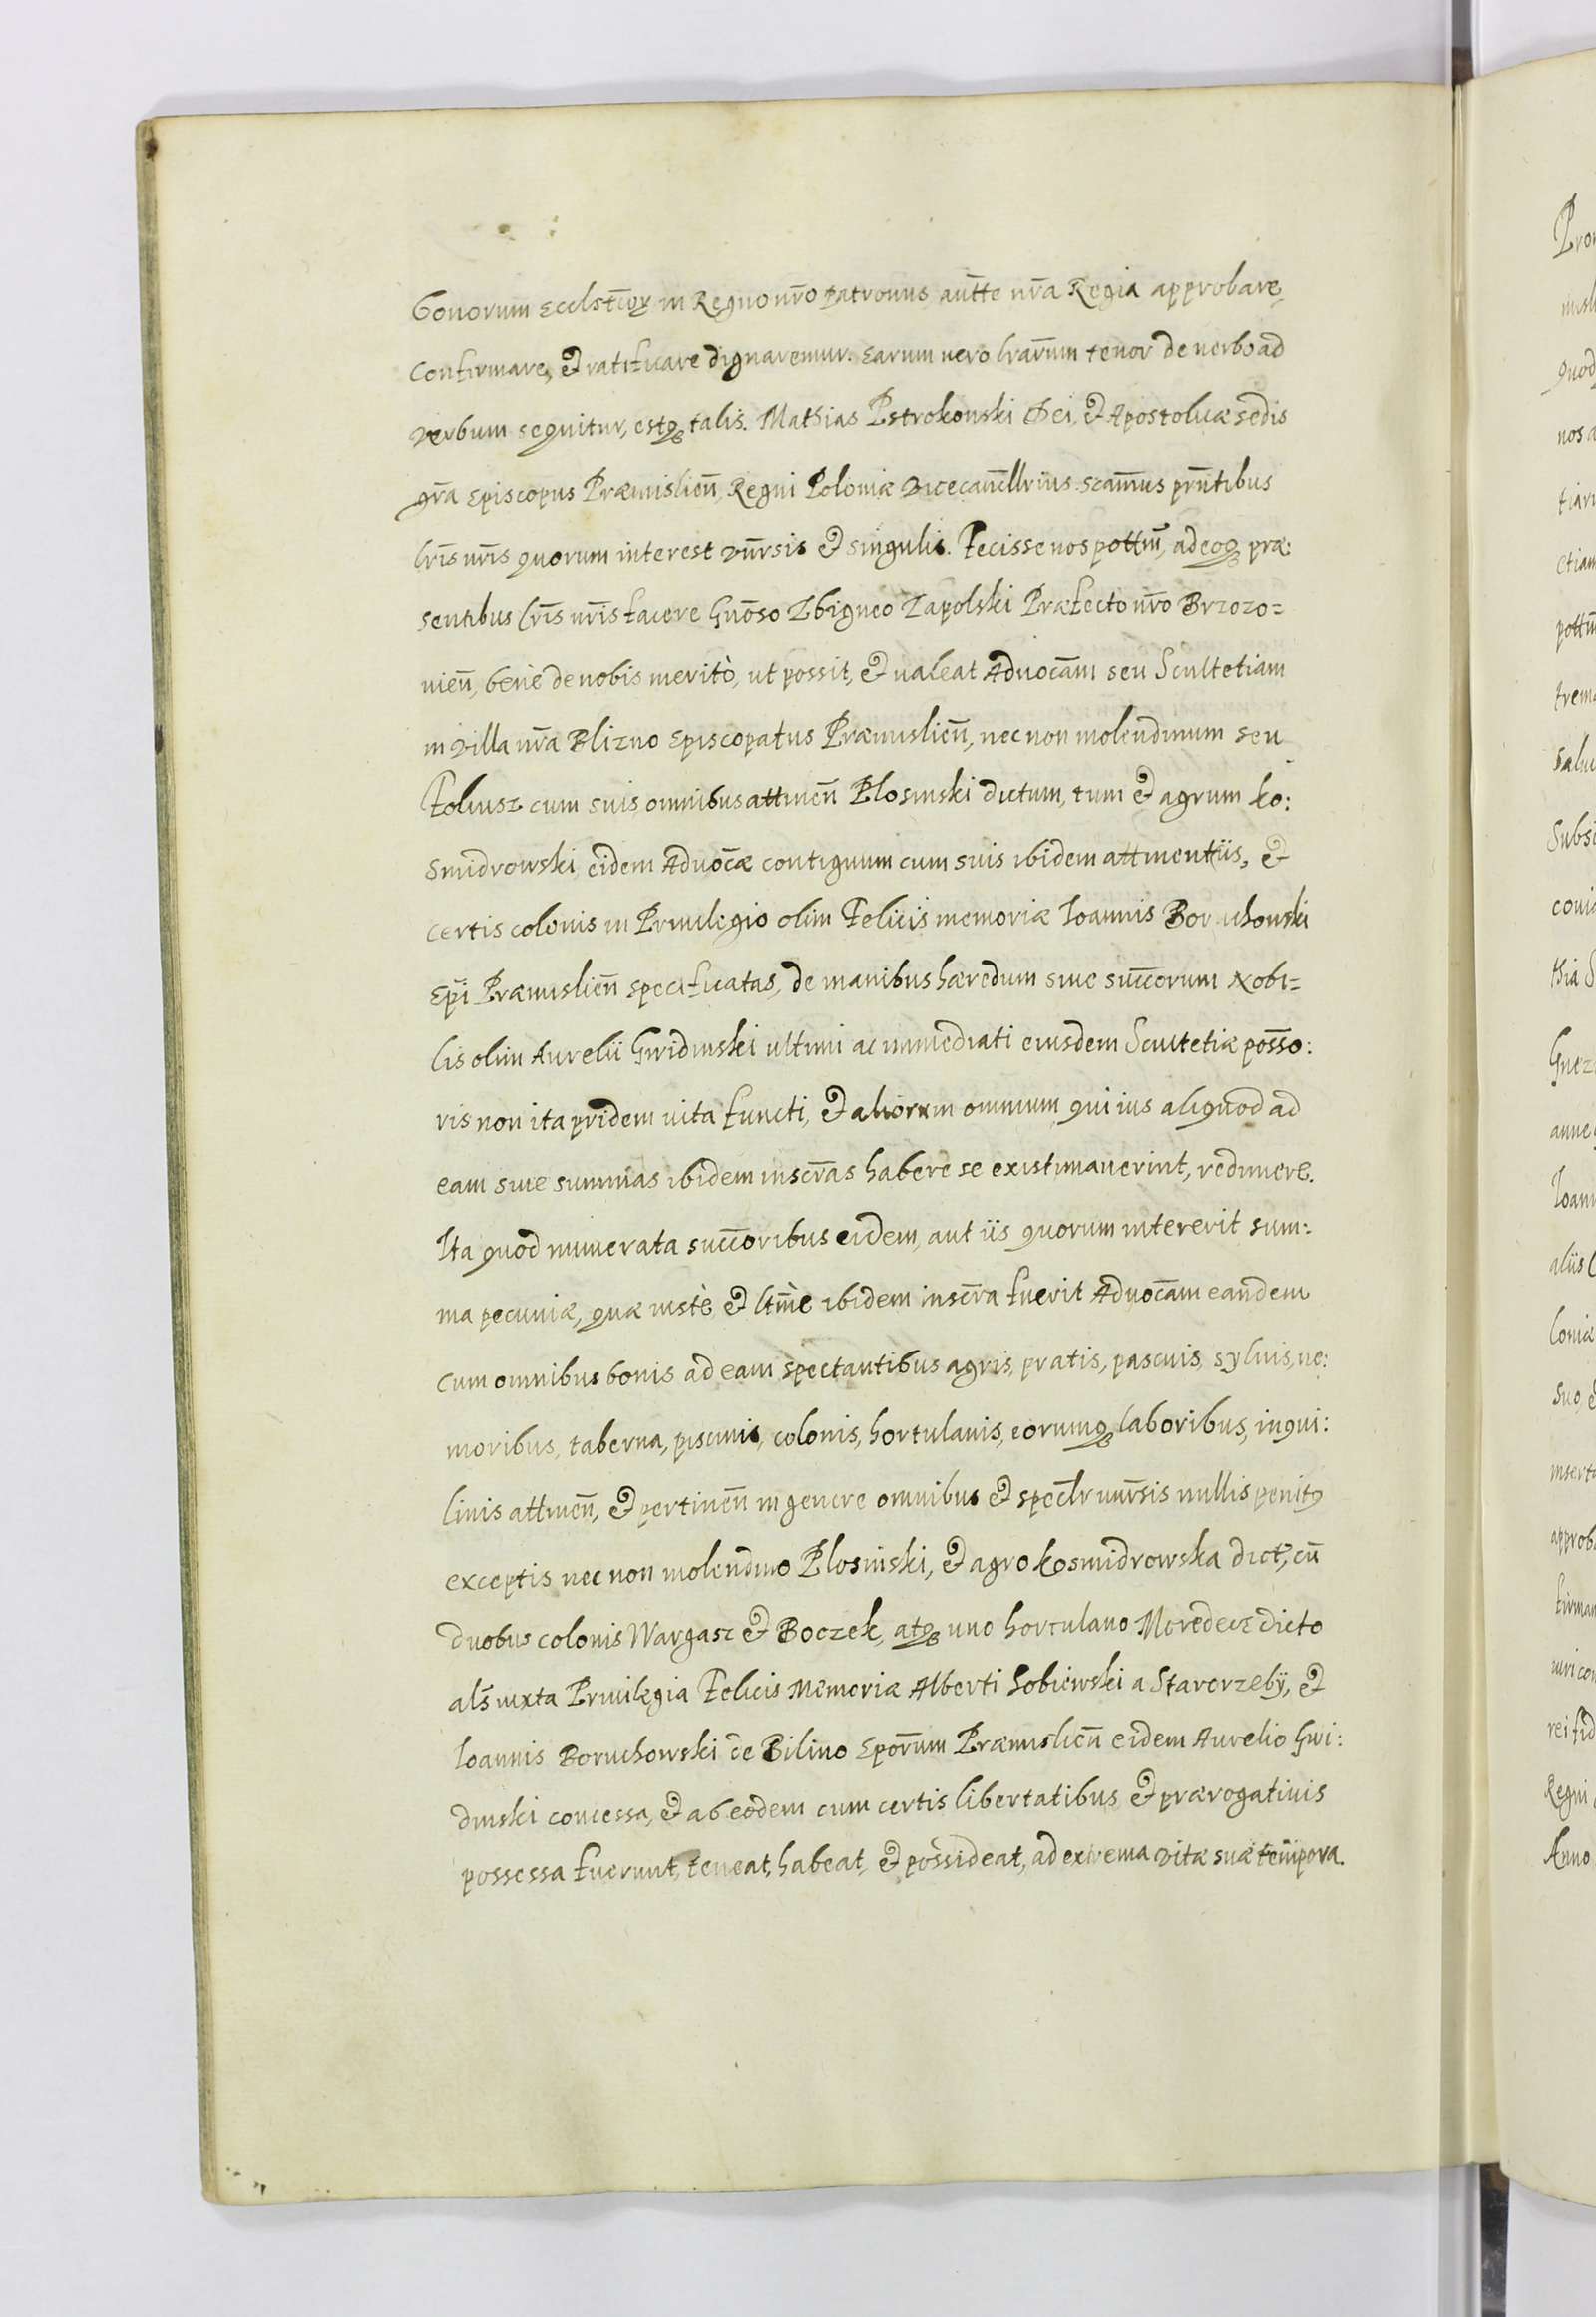 bonorum Ecclsticoꝝ in Regno nr̃o patronus autt̃e nr̃a Regia approbare,
confirmare, et ratificare dignaremur. Earum uero lrãrum tenor de uerbo ad
verbum sequitur, estq; talis. Mathias Pstrokonski Dei, et Apostolicæ sedis
gr̃a Episcopus Præmislien̄, Regni Poloniæ vicecan̄cllrius. scam̄us prñtibus
lr̃is nr̃is quorum interest vñrsis et singulis. Fecisse nos pottm̃, adeoq; præ:
sentibus lr̃is nr̃is facere Gnõso Zbigneo Zapolski Præfecto nr̃o Brzozo=
uien̄, benè de nobis meritò, ut possit, et ualeat Aduocãm seu Scultetiam
in villa nr̃a Blizno Episcopatus Præmislien̄, nec non molendinum seu
Foliusz cum suis omnibus attinen̄ Plosinski dictum, tum et agrum ko:
smidrowski eidem Aduocæ̃ contiguum cum suis ibidem attinentiis, et
certis colonis in Priuilegio olim Felicis memoriæ Ioannis Boruchowski
Epĩ Præmislien̄ specificatas, de manibus hæredum siue succ̄orum Nobi=
lis olim Aurelii Gwidinski ultimi ac immediati eiusdem Scultetiæ poss̄o:
ris non ita pridem uita functi, et aliorum omnium qui ius aliquod ad
eam siue summas ibidem inscr̃as habere se existimauerint, redimere.
Ita quod numerata succ̄oribus eidem, aut iis quorum intererit sum:
ma pecuniæ, quæ iustè et ltm̃è ibidem inscr̃a fuerit Aduocãm eandem
cum omnibus bonis ad eam spectantibus agris, pratis, pascuis, syluis, ne:
moribus, taberna, piscinis, colonis, hortulanis, eorumq; laboribus, inqui:
linis attinen̄, et pertinen̄ in genere omnibus et spec̄lr uñrsis nullis penitꝰ
exceptis nec non molendino Plosinski, et agro kosmidrowska dict, cũ
duobus colonis Wargasz et Boczek, atq; uno hortulano Meredecz dicto
als̃ iuxta Priuilegia Felicis Memoriæ Alberti Sobiewski a Starorzeby, et
Ioannis Boruchowski de Bilino Epõrum Præmislien̄ eidem Aurelio Gwi:
dinski concessa, et ab eodem cum certis libertatibus et prærogatiuis
possessa fuerunt, teneat, habeat, et possideat, ad extrema vitæ suæ tempora.